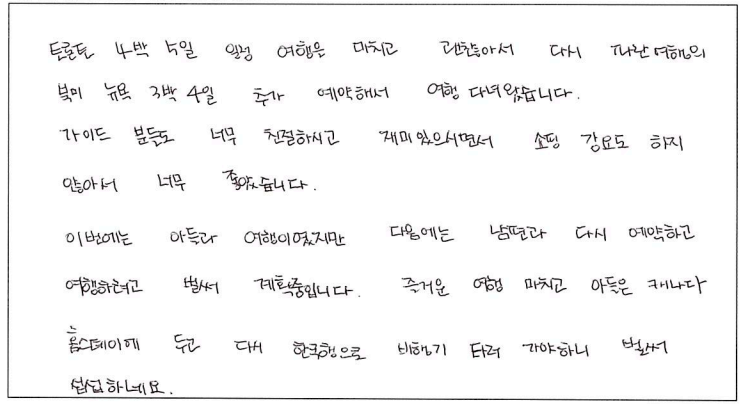 토론토 4박 5일 일정 여행은 마치고 괜찮아서 다시 파란여행의
북미 뉴욕 3박 4일 추가 예약해서 여행 다녀왔습니다.
가이드 분들도 너무 친절하시고 재미있으시면서 쇼핑 강요도 하지
않아서 너무 좋았습니다.
이번에는 아들과 여행이였지만 다음에는 남편과 다시 예약하고
여행하려고 벌써 계획중입니다. 즐거운 여행 마치고 아들은 캐나다
홈스테이에 두고 다시 한국행으로 비행기 타러 가야하니 벌써
섭섭하네요.